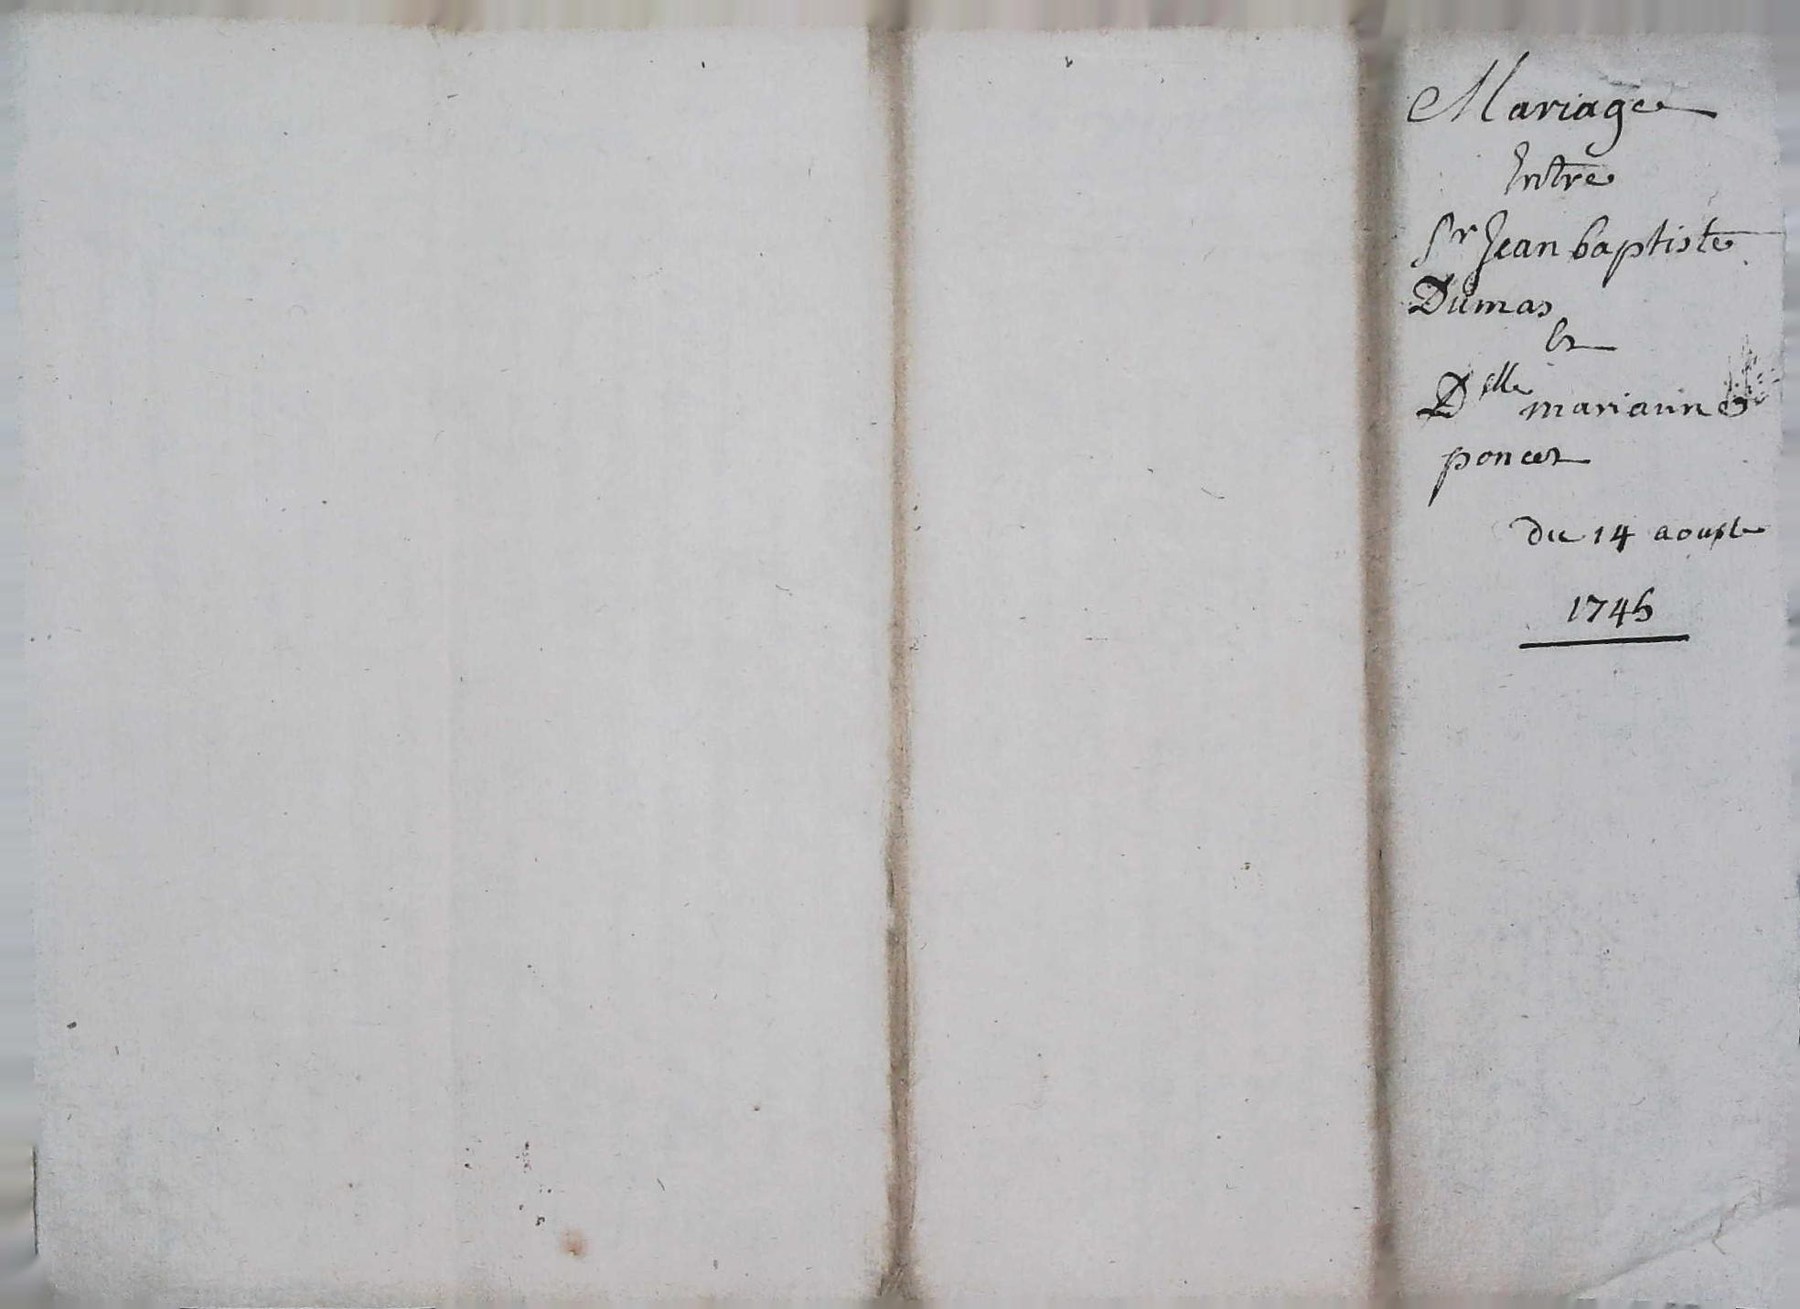 Mariage
Entre
Sr Jean baptiste
Dumas
Et
Dlle marianne
poncet
du 14 aoust
1745